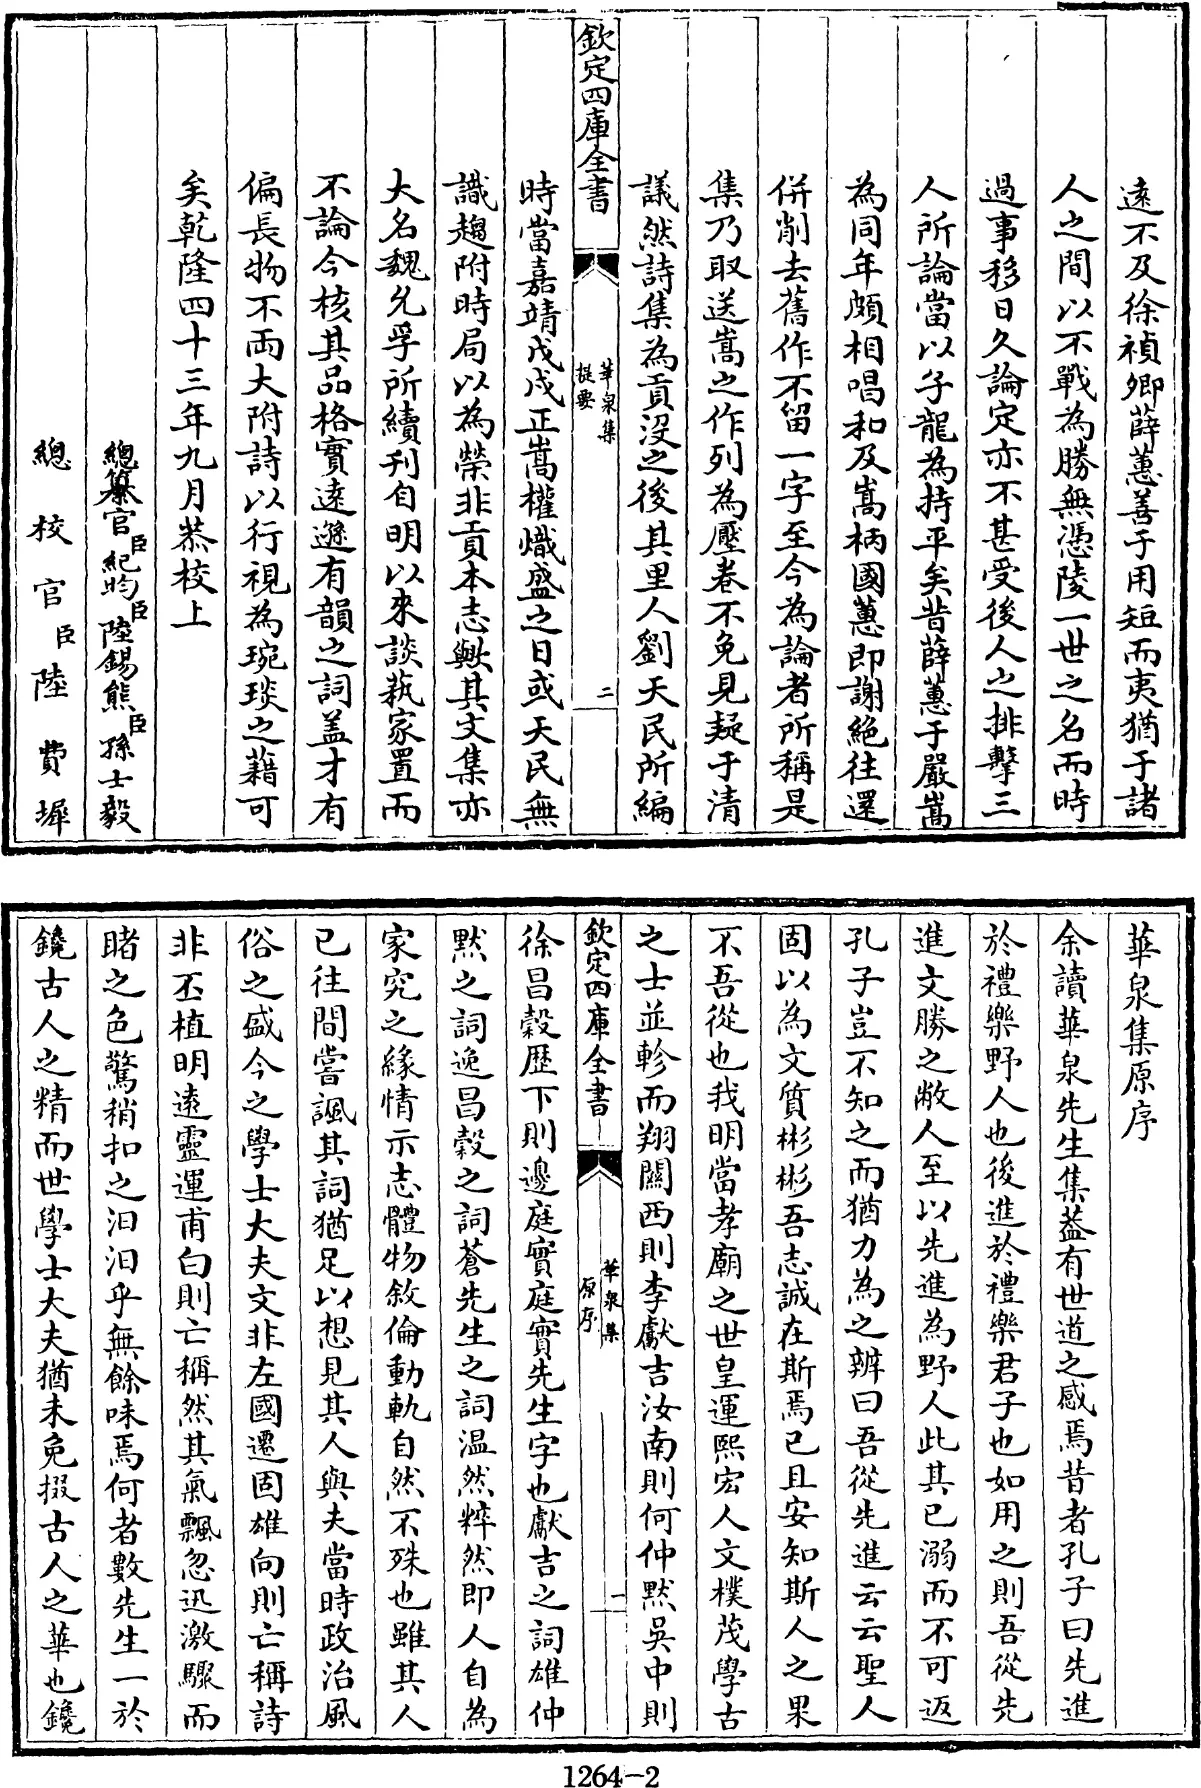 遠不及徐禎卿薛蕙善于用短而夷猶于諸
人之間以不戰為勝無憑陵一世之名而時
過事移日久論定亦不甚受後人之排擊三
人所論當以子龍為持平矣昔薛蕙于嚴嵩
為同年頗相唱和及嵩柄國蕙即謝絕往還
併削去舊作不留一字至今為論者所稱是
集乃取送嵩之作列為壓卷不免見疑于清
議然詩集為貢没之後其里人劉天民所編
欽定四庫全書
華泉集
提要
二
時當嘉靖戊戌正嵩權熾盛之日或天民無
識趨附時局以為榮非貢本志歟其文集亦
大名魏允孚所續刋自明以來談藝家置而
不論今核其品格實遠遜有韻之詞盖才有
偏長物不兩大附詩以行視為琬琰之藉可
矣乾隆四十三年九月恭校上
總纂官臣紀昀臣陸錫熊臣孫士毅
總校官臣陸費墀
華泉集原序
余讀華泉先生集葢有世道之感焉昔者孔子曰先進
於禮樂野人也後進於禮樂君子也如用之則吾從先
進文勝之敝人至以先進為野人此其已溺而不可返
孔子豈不知之而猶力為之辨曰吾從先進云云聖人
固以為文質彬彬吾志誠在斯焉已且安知斯人之果
不吾從也我明當孝廟之世皇運熙宏人文樸茂學古
之士並軫而翔關西則李獻吉汝南則何仲默吳中則
欽定四庫全書
華泉集
原序
一
徐昌穀歷下則邊庭實庭實先生字也獻吉之詞雄仲
默之詞逸昌穀之詞蒼先生之詞温然粹然即人自為
家究之緣情示志體物敘倫動軌自然不殊也雖其人
已往間嘗諷其詞猶足以想見其人與夫當時政治風
俗之盛今之學士大夫文非左國遷固雄向則亡稱詩
非丕植明遠靈運甫白則亡稱然其氣飄忽迅激驟而
睹之色驚稍扣之汩汩乎無餘味焉何者數先生一於
鑱古人之精而世學士大夫猶未免掇古人之華也鑱
1264-2